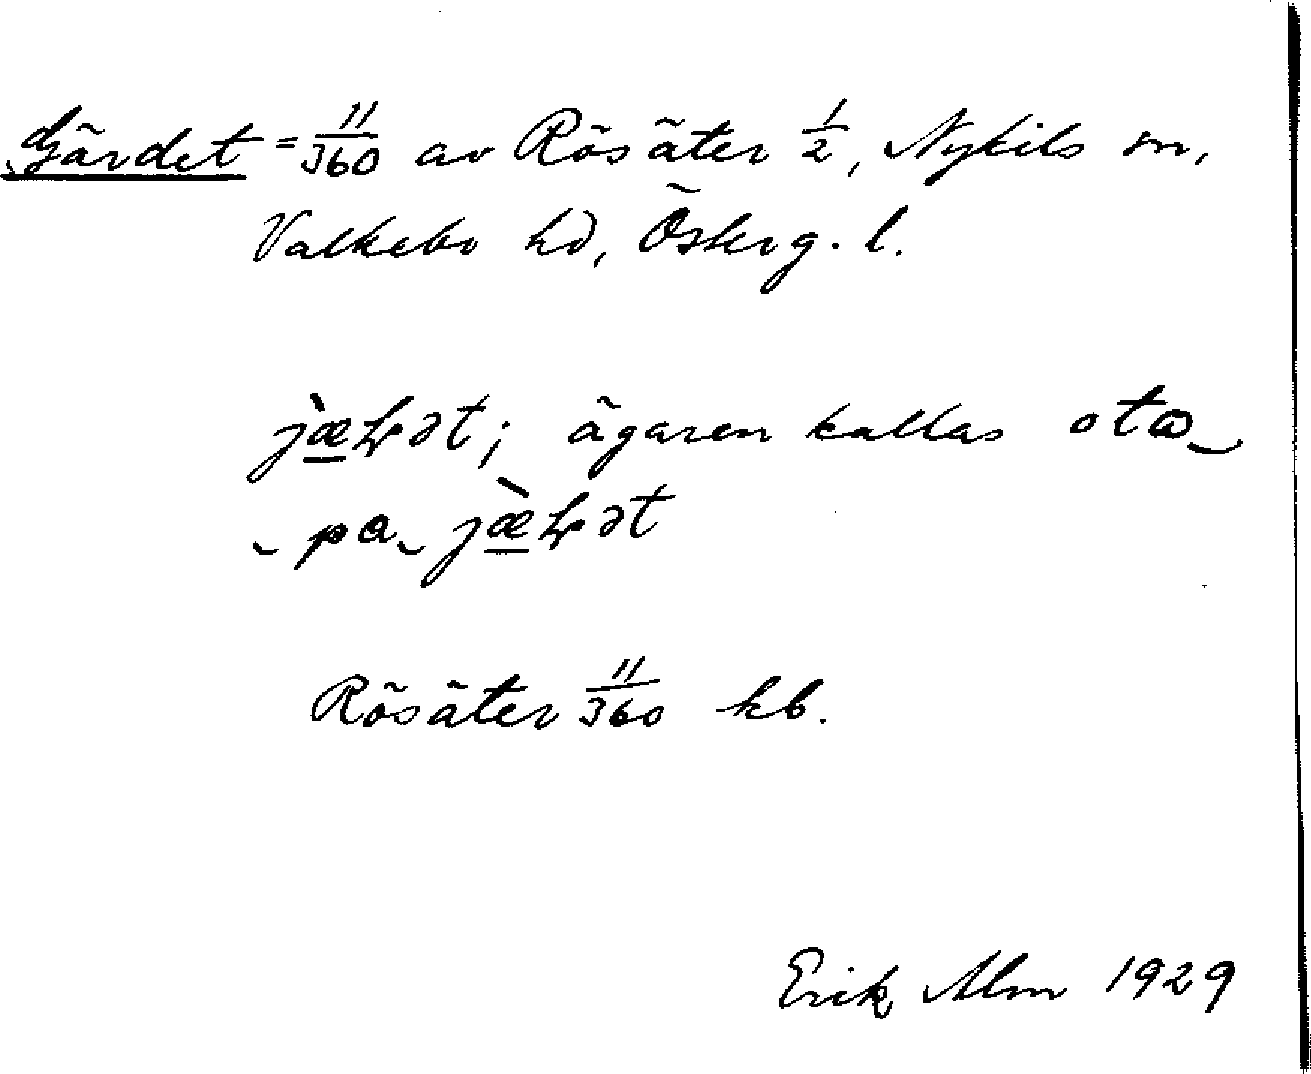 Gärdet = 11/360 av Rösäter 1/2, Nykils sn,
Valkebo hd, Österg. l.
ägaren kallas
Rösäter 11/360 kb.
Erik Alm 1929